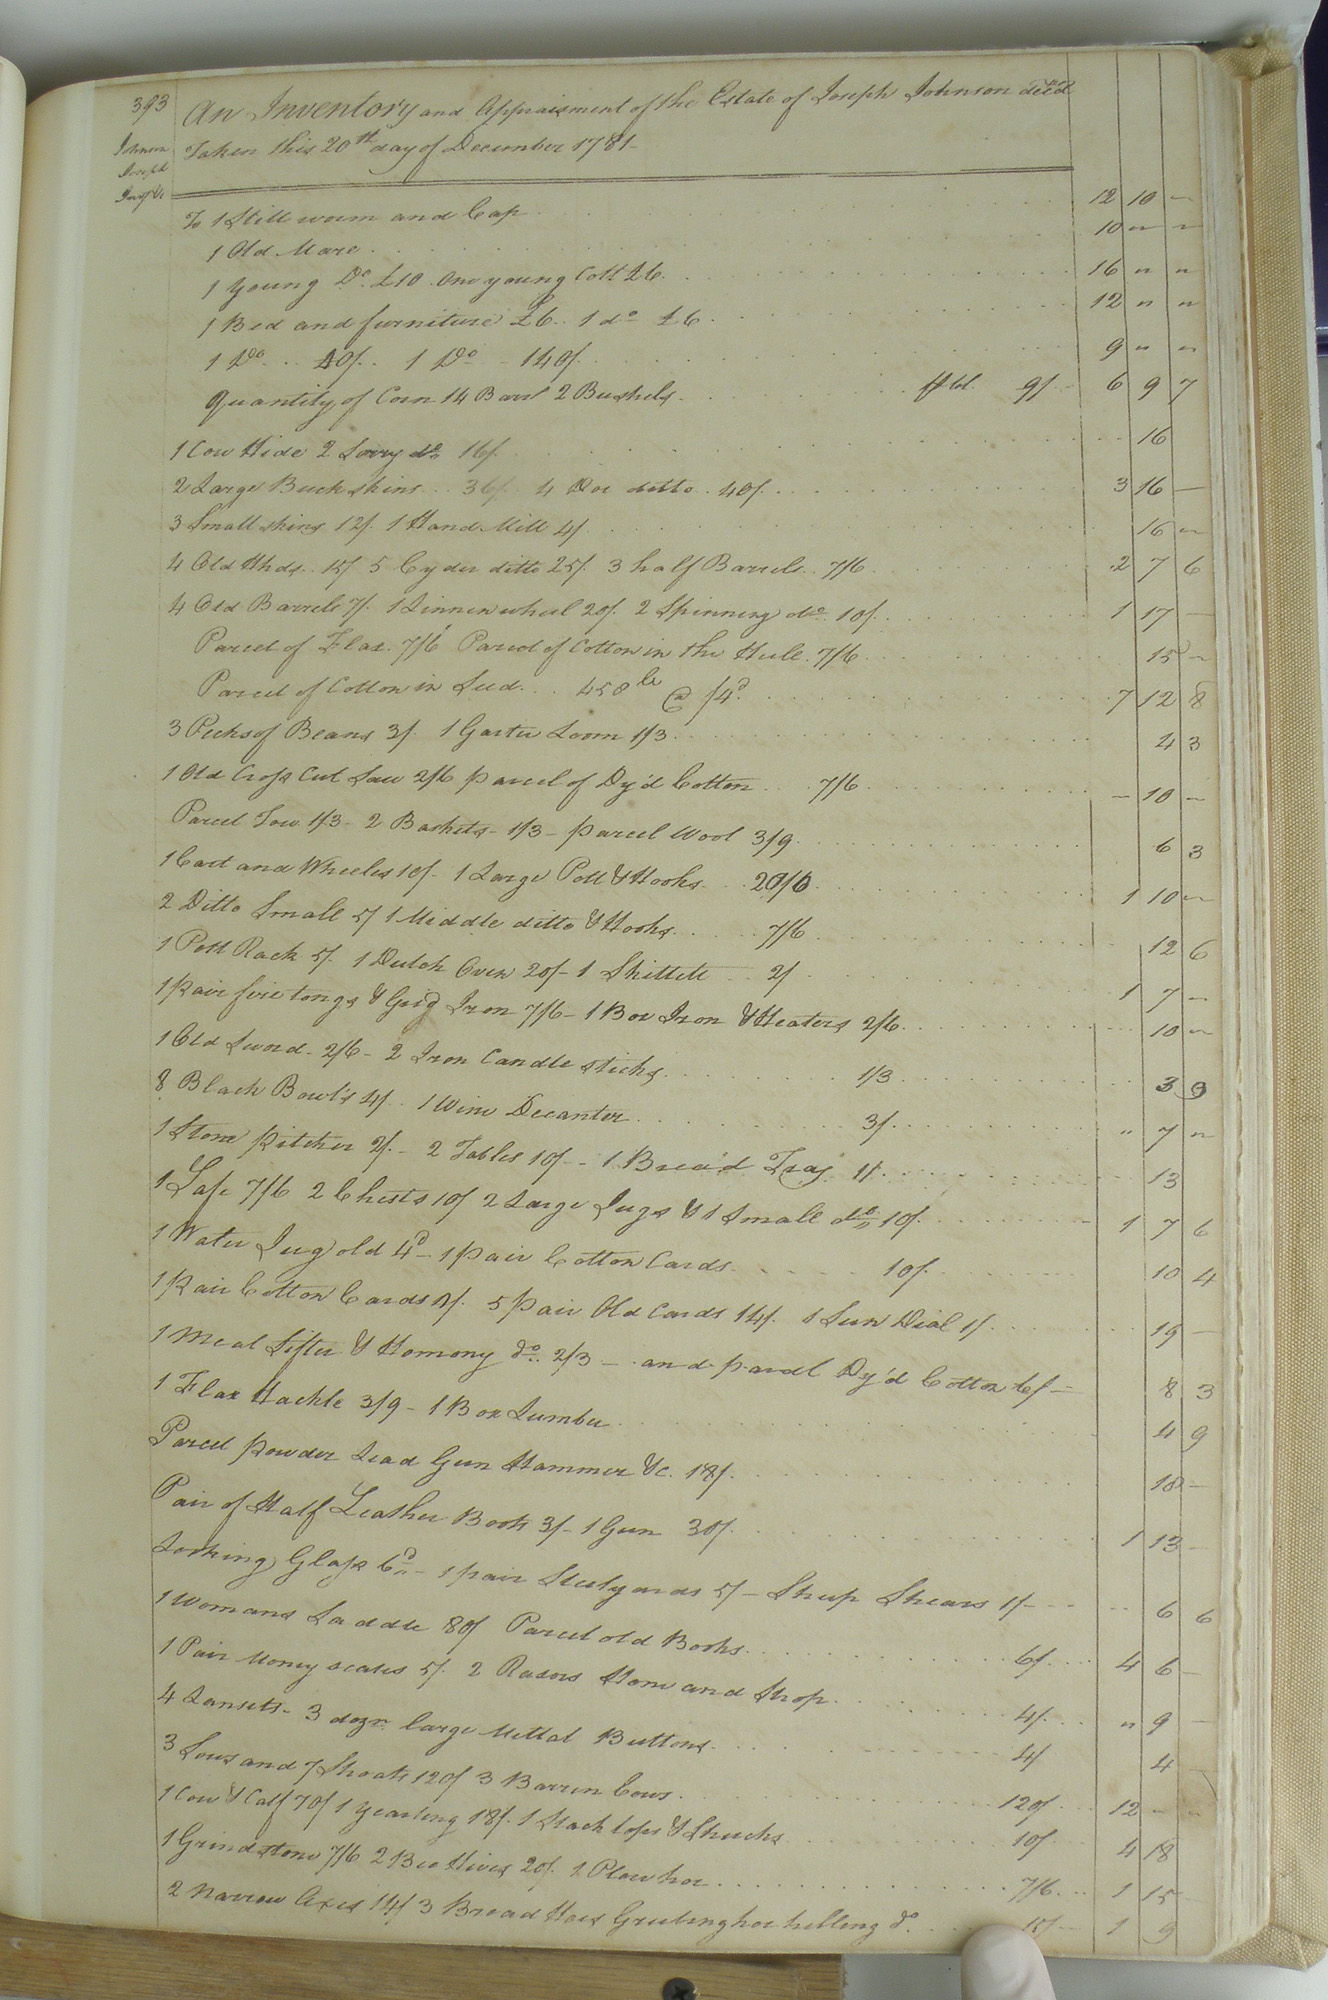 393
An Inventory and Appraisment of the Estate of Joseph Johnson dec'd
Johnson
Joseph
Invy &c
Taken this 20th day of December 1781-
To 1 Still worm and Cap 12 10 -
1 Old Mare 10 " "
1 Young Do. £10 One young Colt £6. 16 " "
1 Bed and furniture £6.. 1 do £6 12 " "
1 Do .. 40/. 1 Do - 140/. 9 " "
Quantity of Corn 14 Barrl 2 Bushels. 9/- 6 9 7
1 Cow Hide 2 do 16/. 16
2 Large Buckskins .. 36/. 4 Doe ditto . 40/. 3 16 -
3 Small skins 12/. 1 Hand Mill 4/. 16 "
4 Old Hhds. 15/ 5 Cyder ditto 25/. 3 half Barrels .. 7/6 2 7 6
4 Old Barrels 7/. 1 Linnen wheel 20/. 2 Spinning do. 10/. 1 17 -
Parcel of Flax. 7/6 Parcel of Cotton in the Hule. 7/6 15 -
Parcel of Cotton in Seed... 458 lb @ /4d. 7 12 8
3 Pecks of Beans 3/. 1 Garter Loom 1/3. 4 3
1 Old Cross Cut Saw 2/6 parcel of Dy'd Cotton .. 7/6 - 10 -
Parcel Tow 1/3 - 2 Baskets - 1/3 - parcel Wool 3/9. 6 3
1 Cart and Wheeles 10/- 1 Large Pott & Hooks .. 20/0. 1 10 "
2 Ditto Small 5/ 1 Middle ditto & Hooks. 7/6 12 6
1 Pott Rack 5/. 1 Dutch Oven 20/- 1 Skillett .. 2/ 1 7 -
1 Pair fire tongs & Grid Iron 7/6 - 1 Box Iron & Heaters 2/6. 10 "
1 Old Sword. 2/6 - 2 Iron Candle sticks. 1/3 3 9
8 Black Bowl's 4/. 1 Wine Decanter. 3/. " 7 "
1 Stone pitcher 2/. - 2 Tables 10/- - 1 Bread Tray 1/. 13
1 Safe 7/6 2 Chests 10/ 2 Large Jugs & 1 Small do 10/. 1 7 6
1 Water Jug old 4d - 1 pair Cotton Cards. 10/. 10 4
1 Pair Cotton Cards 4/. 5 pair Old Cards 14/. 1 Sun Dial 1/. 19 -
1 Meal Sifter & Homony do. 2/3 - and parcel Dy'd Cotton 6/- 8 3
1 Flax Hackle 3/9 - 1 Box Lumber 4 9
Parcel powder Lead Gun Hammer &c. 18/. 18 -
Pair of Half Leather Boots 3/- 1 Gun 30/. 1 13 -
Looking Glass 6d - 1 pair Steelyards 5/- Sheep Shears 1/- 6 6
1 Womans Saddle 80/ Parcel old Books. 6/. 4 6 -
1 Pair Money scales 5/. 2 Rasors Hone and Strop. 4/. " 9 -
4 Lansets - 3 dozn. large Mettal Buttons. 4/ 4
3 Sows and 7 Shoats 120/ 3 Barren Cows. 120/. 12 - -
1 Cow & Calf 70/ 1 Yearling 18/. 1 Stack tops & Shucks 10/. 4 18
1 Grindstone 7/6 2 Bee Hives 20/. 1 Plow hoe 7/6 1 15 -
2 Narrow Axes 14/ 3 Broad Hoes Grubing hoe hilling do. 15/- 1 9